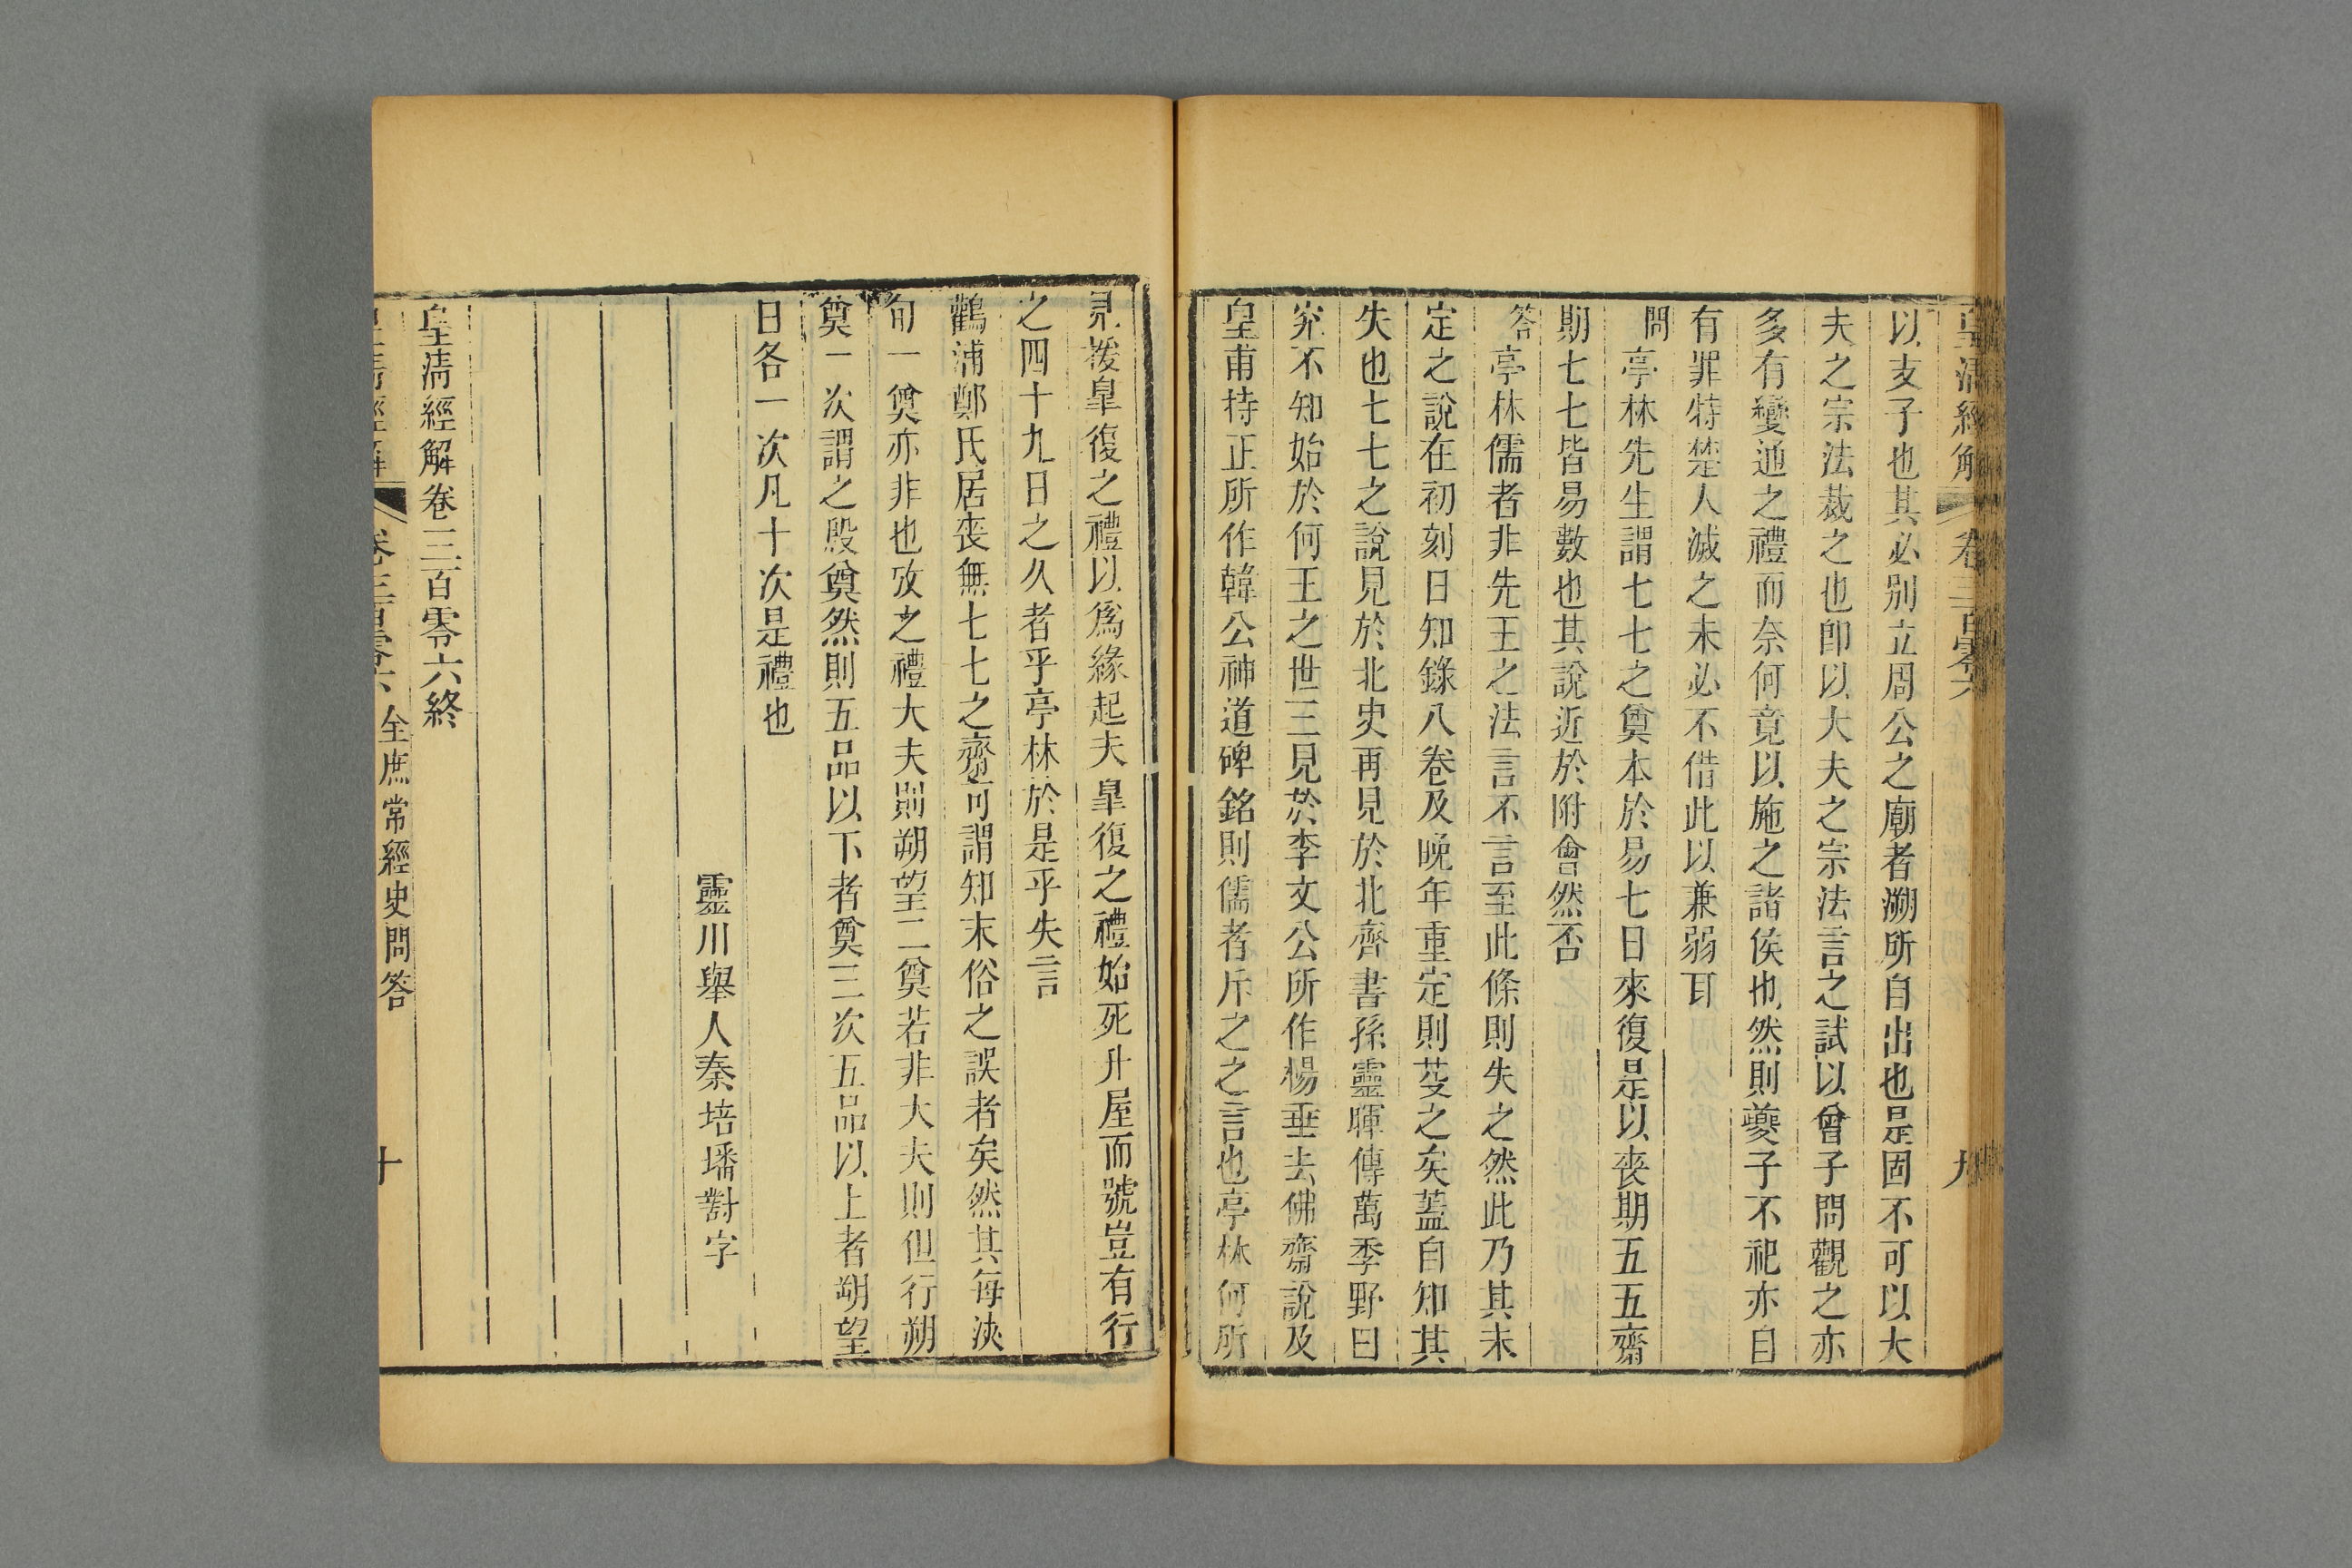 皇清經解 卷三百零六 九
以支子也其必別立周公之廟者溯所自出也是固不可以大
夫之宗法裁之也卽以大夫之宗法言之試以曾子問觀之亦
多有變通之禮而奈何竟以施之諸侯也然則夔子不祀亦自
有罪特楚人滅之未必不借此以兼弱耳
問亭林先生謂七七之奠本於易七日來復是以喪期五五齋
期七七皆易數也其說近於附會然否
答亭林儒者非先王之法言不言至此條則失之然此乃其未
定之說在初刻日知錄八卷及晚年重定則芟之矣蓋自知其
失也七七之說見於北史再見於北齊書孫靈暉傳萬季野曰
究不知始於何王之世三見於李文公所作楊垂去佛齋說及
皇甫持正所作韓公神道碑銘則儒者斥之之言也亭林何所
見援皐復之禮以爲緣起夫皐復之禮始死升屋而號豈有行
之四十九日之久者乎亭林於是乎失言
鸛浦鄭氏居喪無七七之齋可謂知末俗之誤者矣然其每浹
旬一奠亦非也攷之禮大夫則朔望二奠若非大夫則但行朔
奠一次謂之殷奠然則五品以下者奠三次五品以上者朔望
日各一次凡十次是禮也
靈川舉人秦培璠對字
皇淸經解卷三百零六終
皇清經解 卷三百零六 全庶常經史問答 十